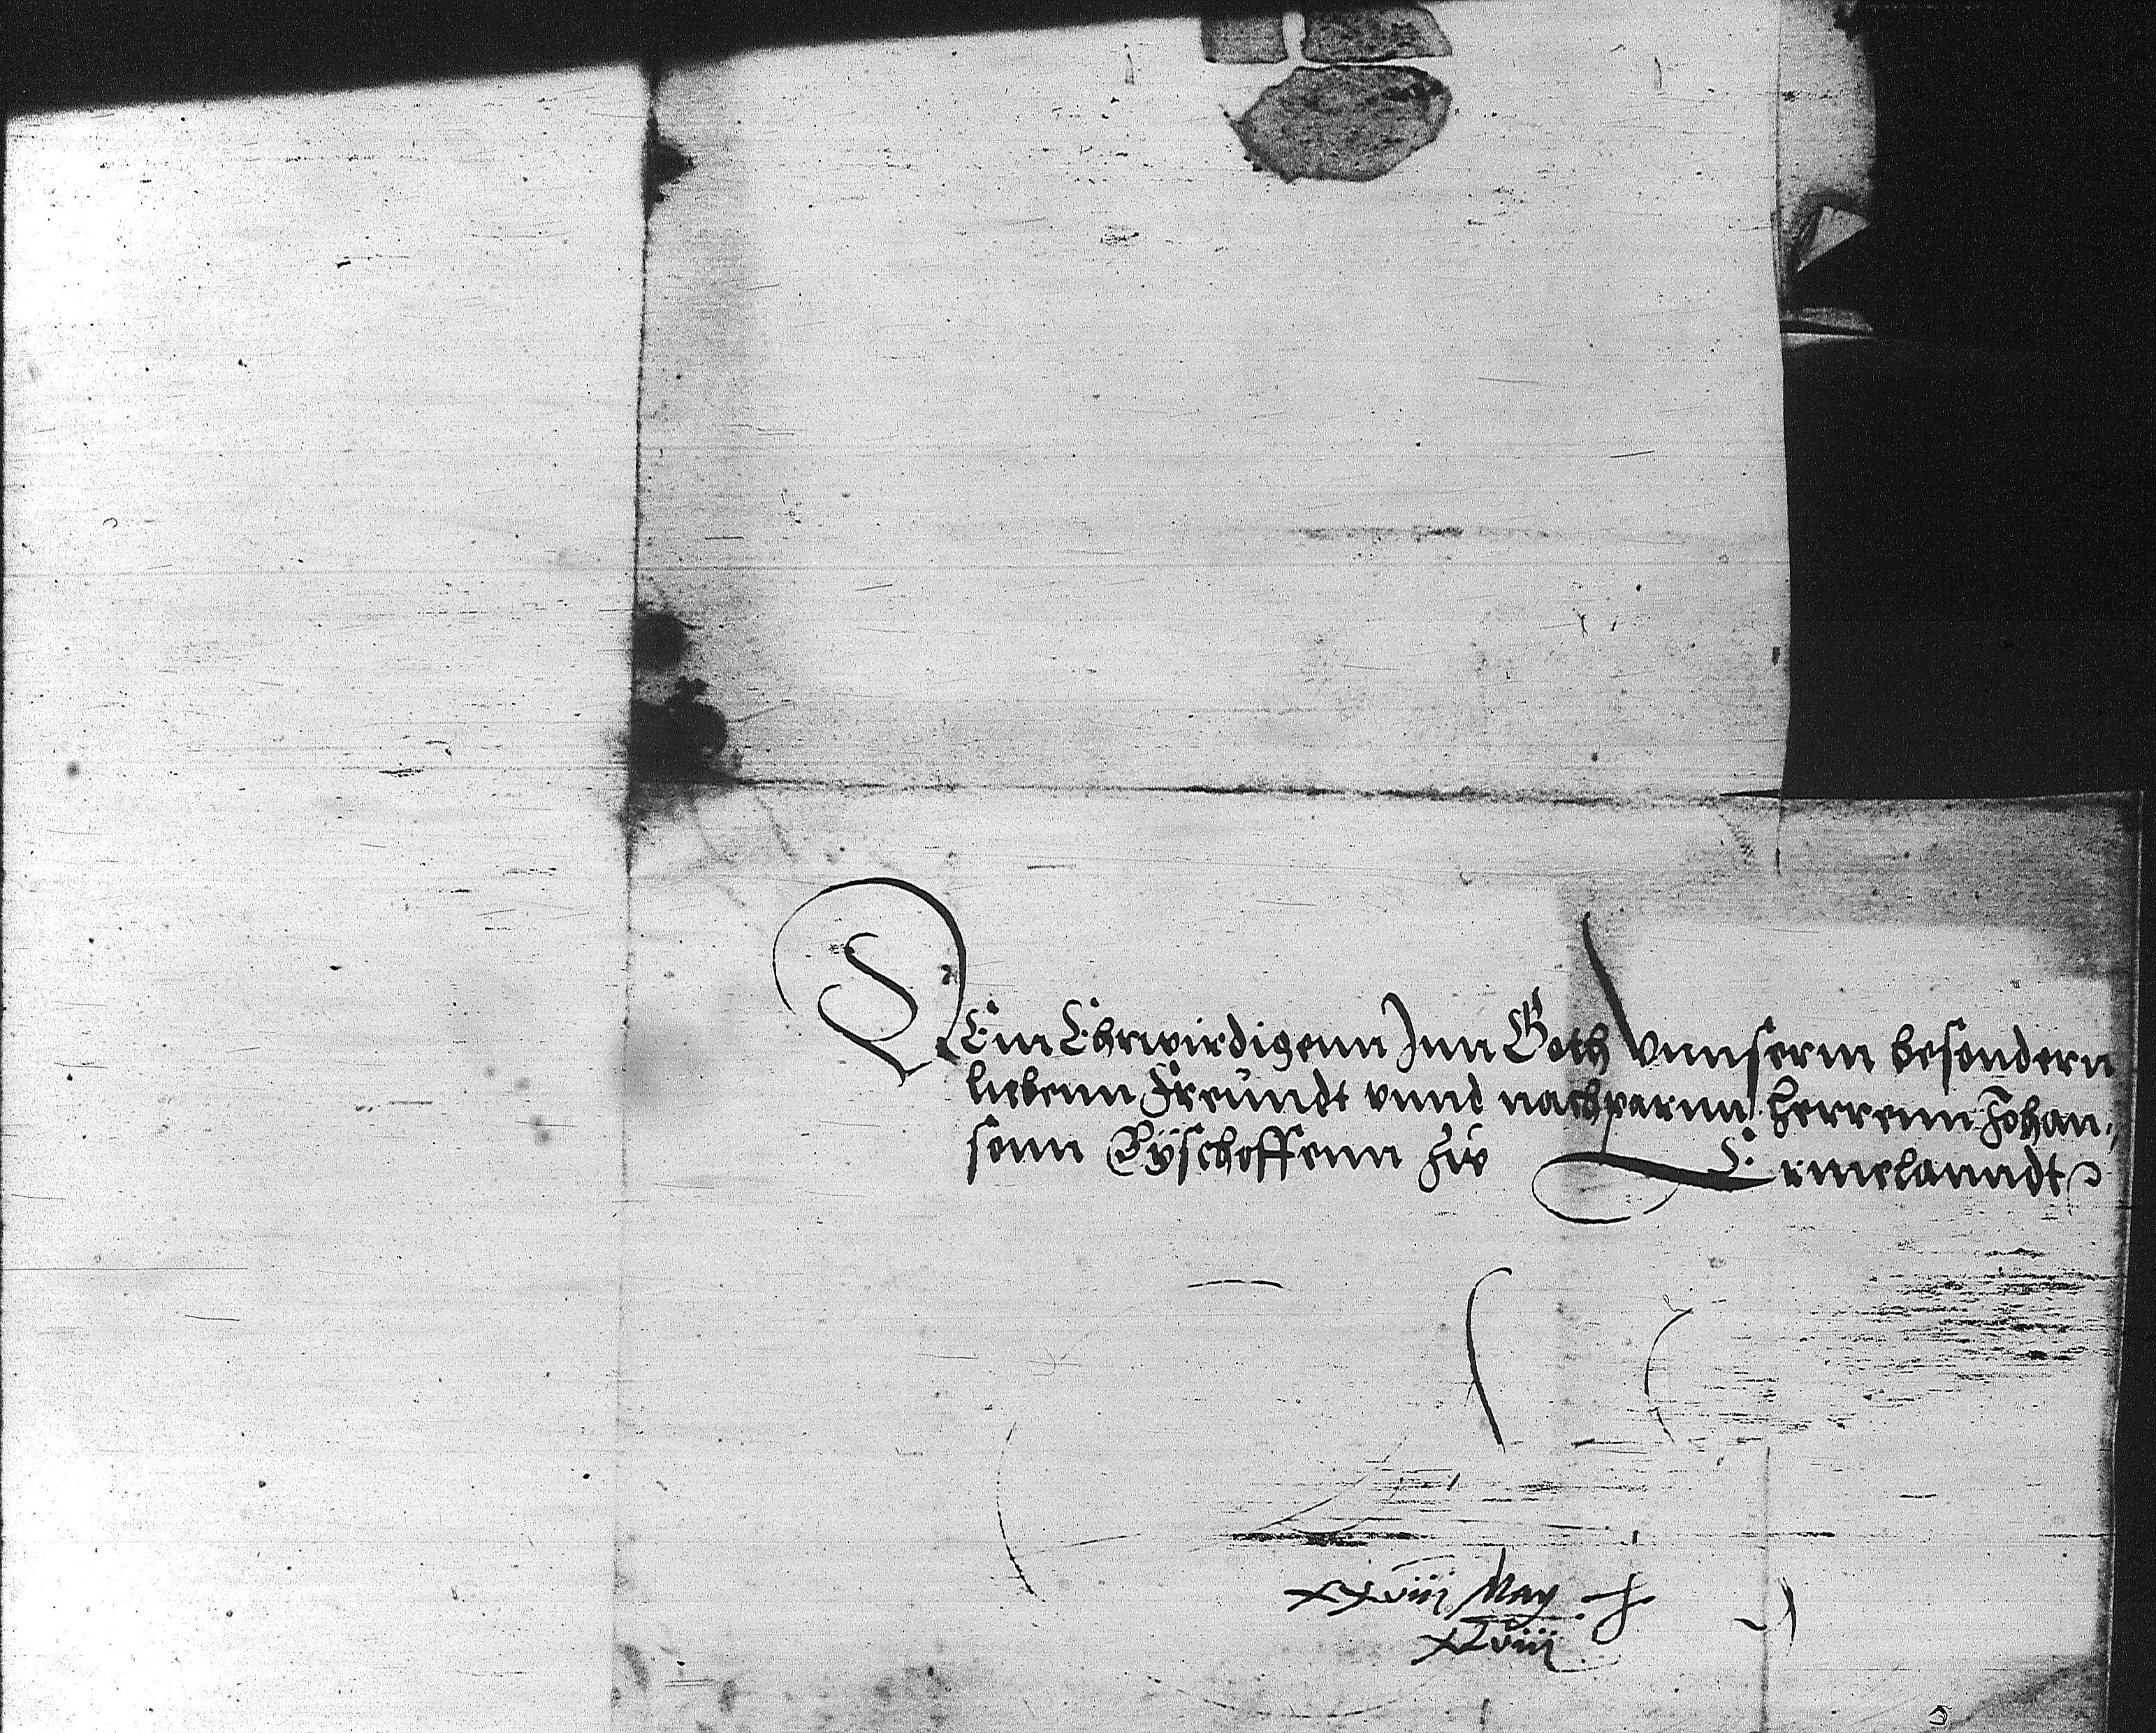 DEm Ehrwirdigenn Inn Goth Vnnserm besondern
liebenn Freundt vnnd nachparnn herrenn Johan,
senn Byschoffenn zu Ermelanndt
xxviii May
xLviii